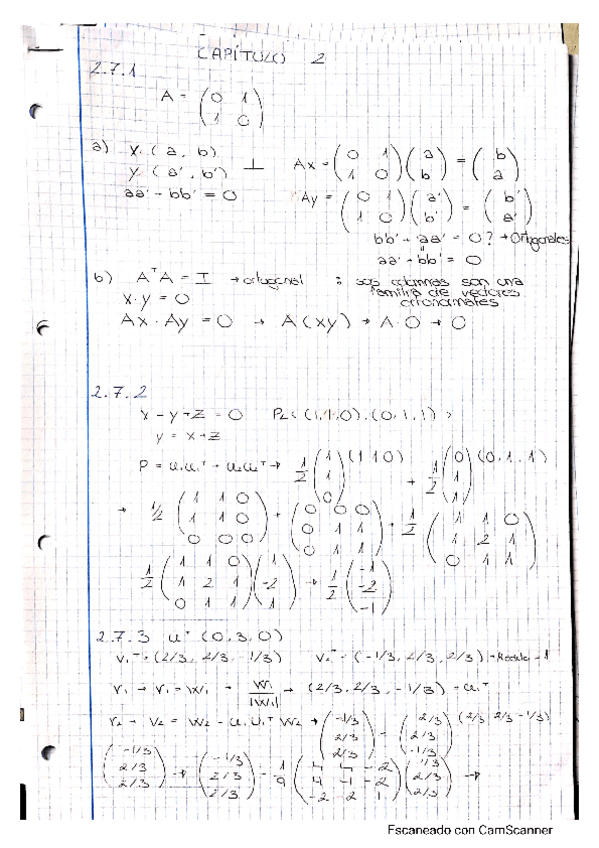 CAPÍTULO 2
2.7.1
A = (0 1
1 0)
a) x (a, b)
y (a', b') ⊥
aa' + bb' = 0
Ax = (0 1
1 0) (a
b) = (b
a)
Ay = (0 1
1 0) (a'
b') = (b'
a')
bb' + aa' = 0? → Ortogonales
aa' + bb' = 0
b) AᵀA = I → ortogonal : sus columnas son una
familia de vectores
ortonormales
x·y = 0
Ax·Ay = 0 → A(xy) → A·0 → 0
2.7.2
x - y + z = 0 P2 < (1,1,0), (0,1,1) >
y = x+z
P = u₁u₁ᵀ + u₂u₂ᵀ → 1/2 (1
1
0) (1 1 0) + 1/2 (0
1
1) (0, 1, 1)
→ 1/2 (1 1 0
1 1 0
0 0 0) + (0 0 0
0 1 1
0 1 1) → 1/2 (1 1 0
1 2 1
0 1 1)
1/2 (1 1 0
1 2 1
0 1 1) (1
-2
1) → 1/2 (-1
-2
-1)
2.7.3 uᵀ (0,3,0)
v₁ᵀ = (2/3, 2/3, -1/3) v₂ᵀ = (-1/3, 2/3, 2/3) → Modulo = 1
r₁ → v₁ = w₁ → w₁/|w₁| → (2/3, 2/3, -1/3) = u₁ᵀ
r₂ → v₂ = w₂ - u₁u₁ᵀ w₂ → (-1/3
2/3
2/3) - (2/3
2/3
-1/3) (2/3 2/3 -1/3)
(-1/3
2/3
2/3) → (-1/3
2/3
2/3) - 1/9 (4 4 -2
4 4 -2
-2 -2 1) (-1/3
2/3
2/3) →
Escaneado con CamScanner